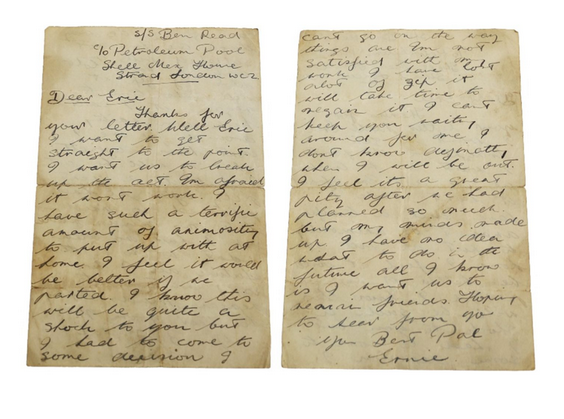 S/S Ben Read
c/o Petroleum Pool
Shell Mex House
Strad London WC2
Dear Eric
Thanks for
your letter. Well Eric
I want to get
straight to the point.
I want us to break
up the act. I'm afraid
it won't work. I
have such a terrific
amount of animosity
to put up with at
home I feel it would
be better if we
parted I know this
will be quite a
shock to you but
I had to come to
some decision I
cant go on the way
things are I'm not
satisfied with my
work I have lost
alot of zip it
will take time to
regain it I cant
keep you waiting
around for me I
dont know definatly
when I will be out.
I feel its a great
pity after we had
planned so much
but my minds made
up I have no idea
what to do in the
future all I know
is I want us to
remain friends. Hoping
to hear from you
Your Best Pal
Ernie